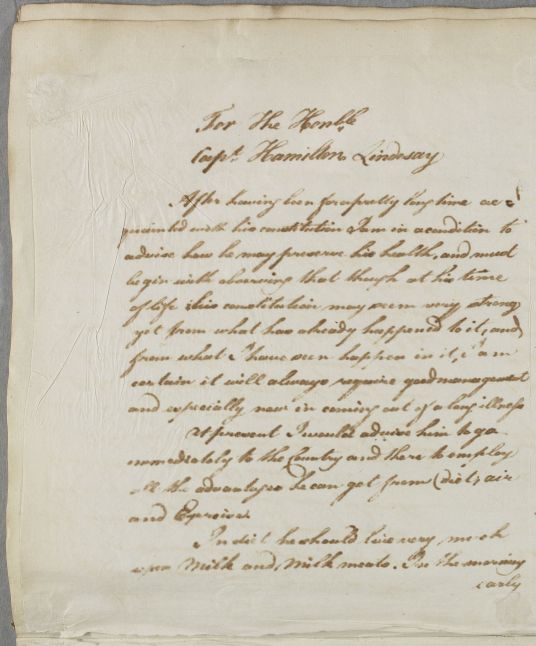 For the Honble
Capt. Hamilton Lindesay
After having been for a pretty long time ac=
quainted with his constitution I am in a condition to
advise how he may preserve his health, and must
begin with observing that though at his time
of life his constitution may seem very strong
yet from what has already happened to it, and
from what I have seen happen in it, I am
certain it will always require good management
and especially now in coming out of a long illness
At present I would advise him to go
immediately to the Country and there to employ
all the advantages he can get from diet, air
and Exercise.
In diet he should live very much
upon Milk and Milk meats. In the morning
early